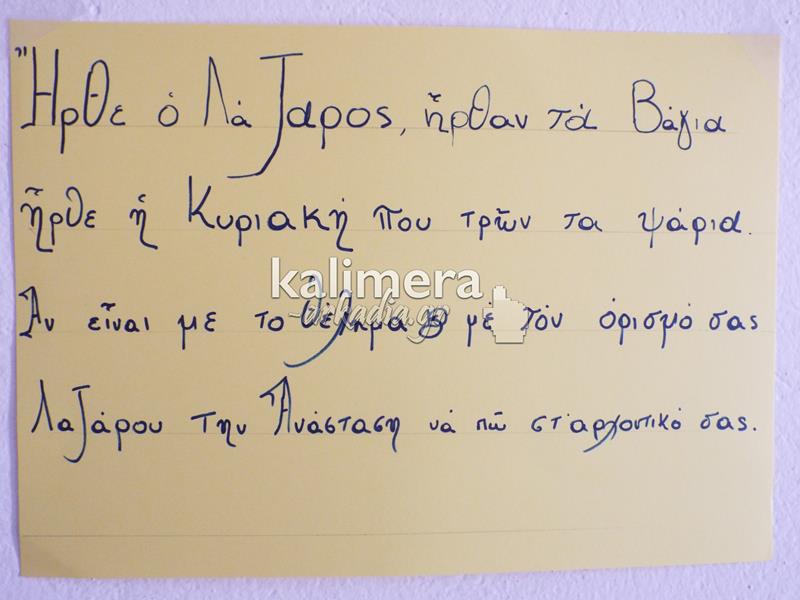 Ἦρθε ὁ Λάζαρος, ἦρθαν τά Βάγια
ἦρθε ἡ Κυριακή που τρῶν τα ψάρια.
Ἄν εἶναι με το θέλημα μέ τόν ὁρισμό σας
Λαζάρου την Ἀνάσταση νά πῶ στ'αρχοντικό σας.
kalimera
-arkadia.gr